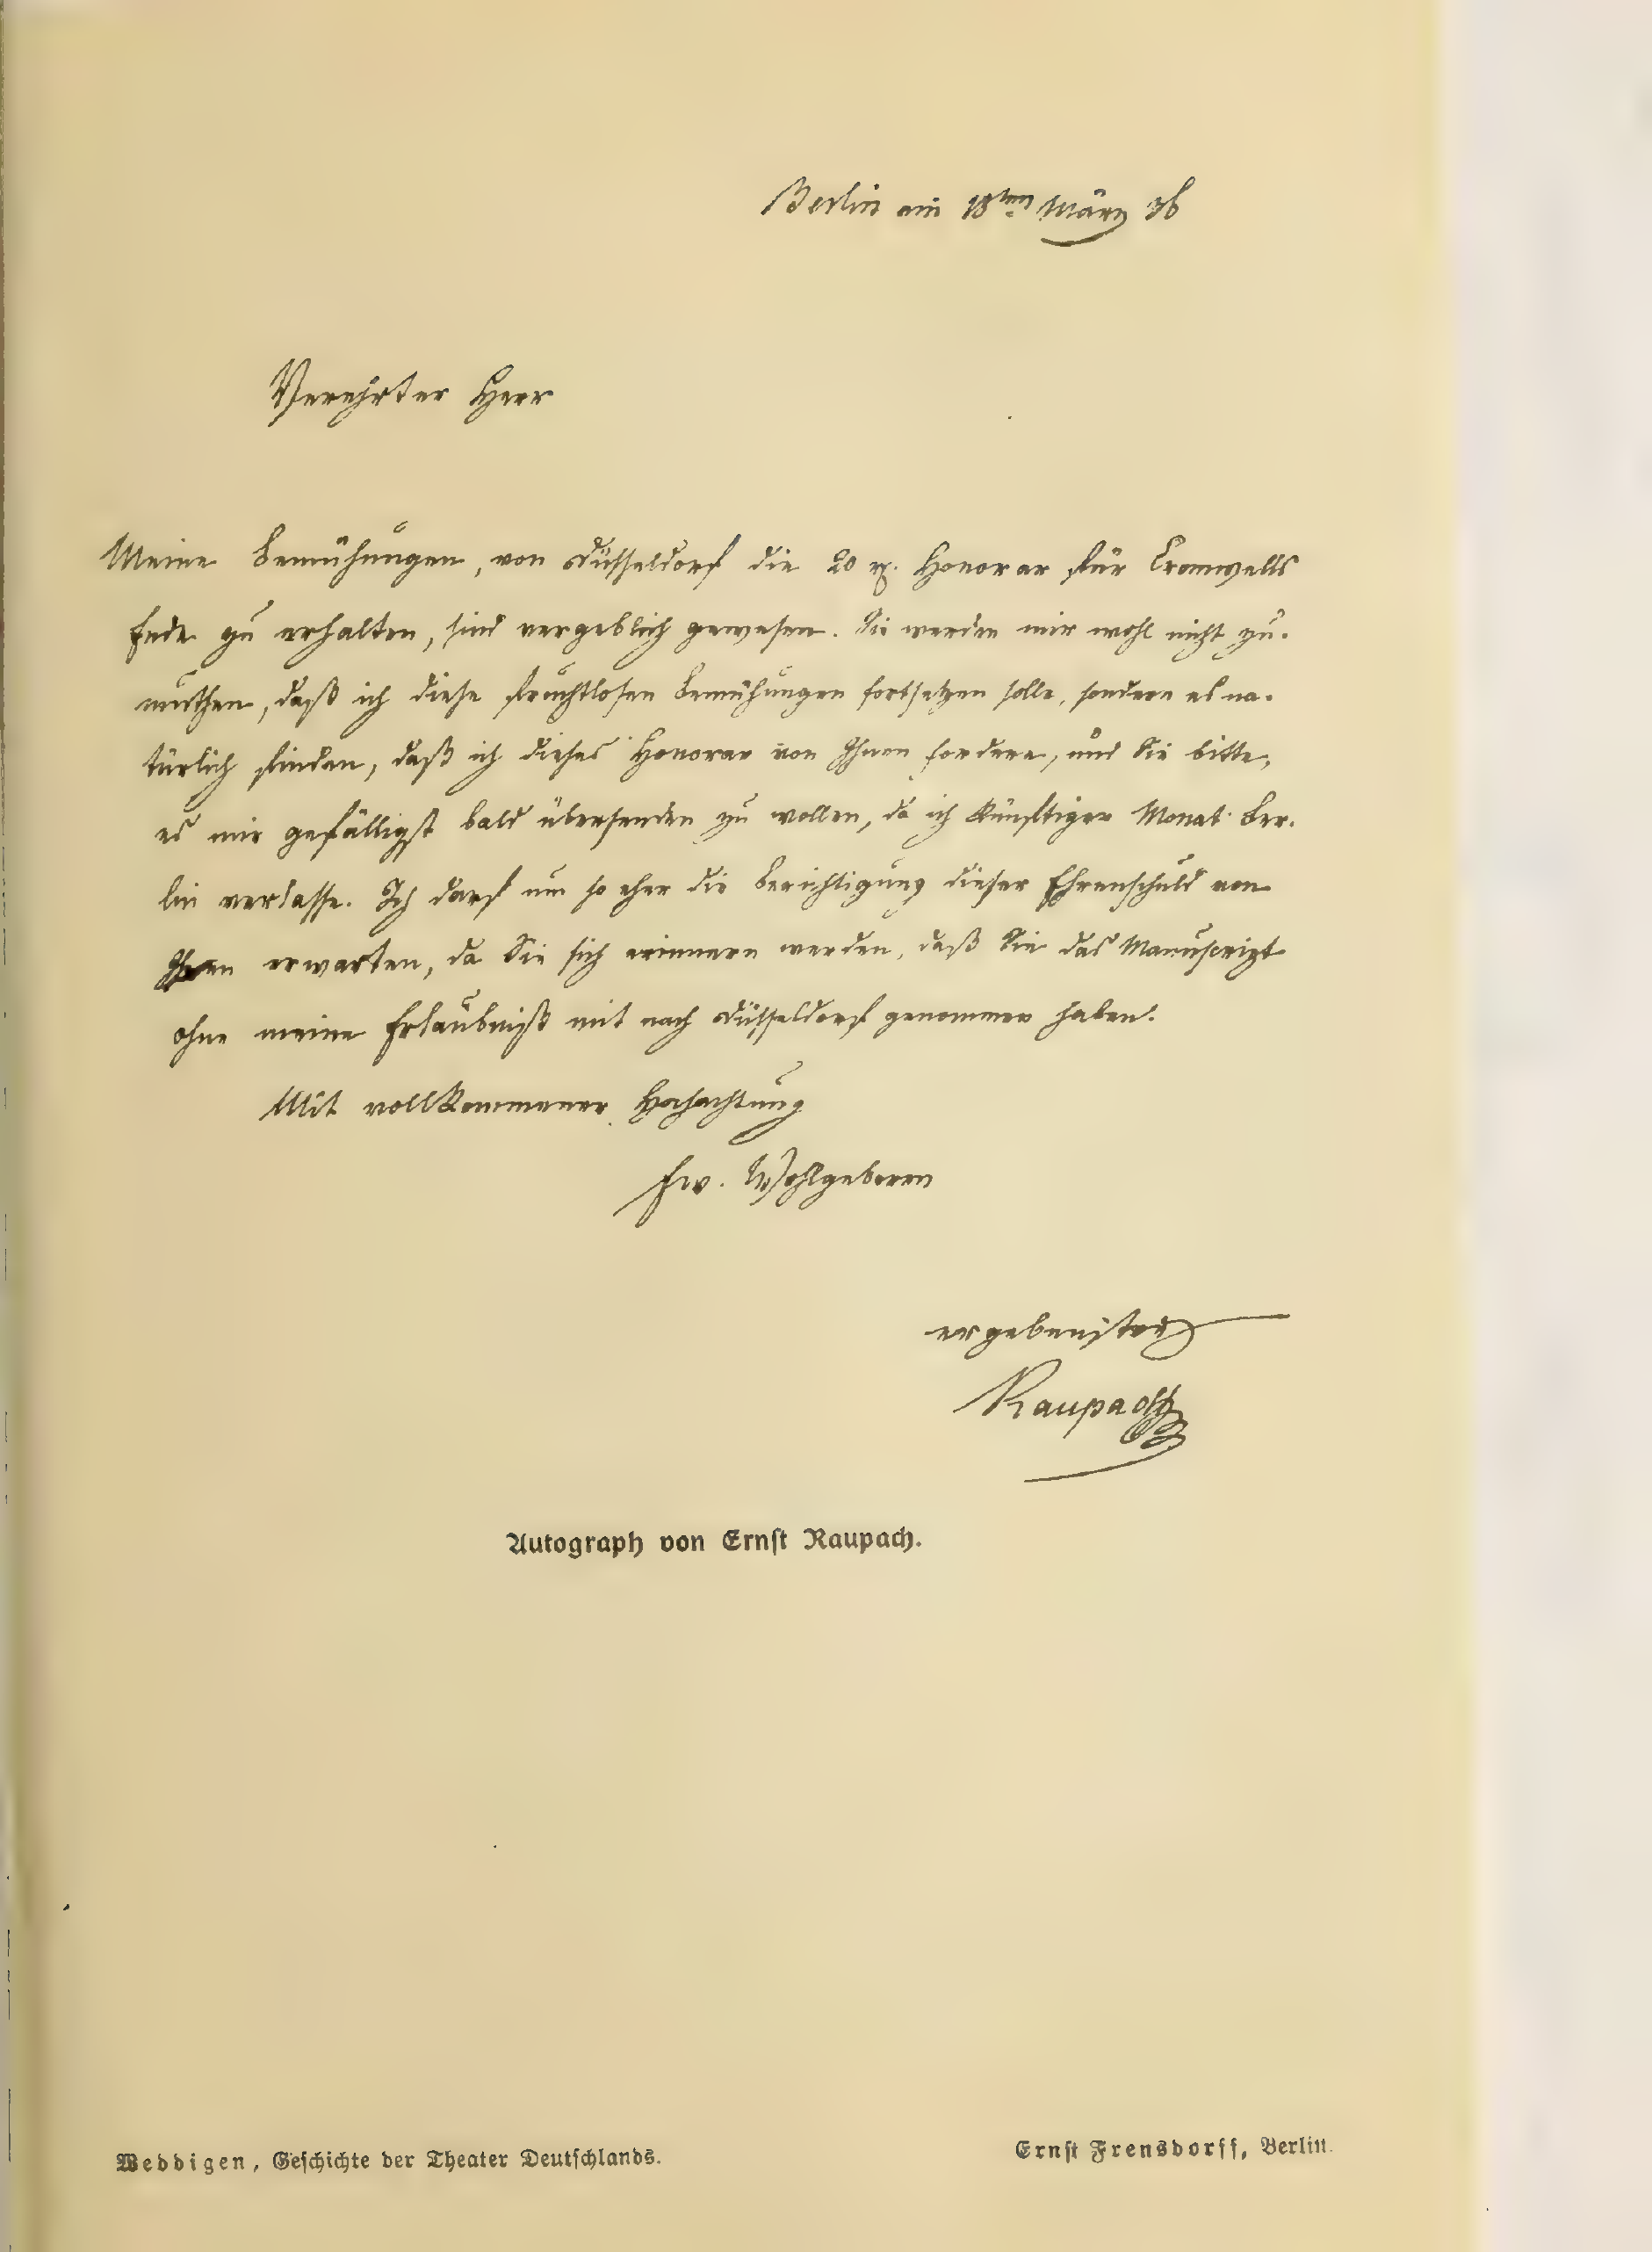 Berlin am 18ten März 36
Verehrter Herr
Meine Bemühungen, von Düsseldorf die 20 rf. Honorar für Cromwells
Ende zu erhalten, sind vergeblich gewesen. Sie werden mir wohl nicht zu-
muthen, daß ich diese fruchtlosen Bemühungen fortsetzen solle, sondern es na-
türlich finden, daß ich dieses Honorar von Ihnen fordere, und Sie bitte,
es mir gefälligst bald übersenden zu wollen, da ich künftigen Monat Ber-
lin verlasse. Ich darf um so eher die Berichtigung dieser Ehrenschuld von
Ihnen erwarten, da Sie sich erinnern werden, daß Sie das Manuscript
ohne meine Erlaubniß mit nach Düsseldorf genommen haben.
Mit vollkommener Hochachtung
Ew. Wohlgeboren
ergebenster
Raupach
Autograph von Ernst Raupach.
Weddigen, Geschichte der Theater Deutschlands.
Ernst Frensdorff, Berlin.